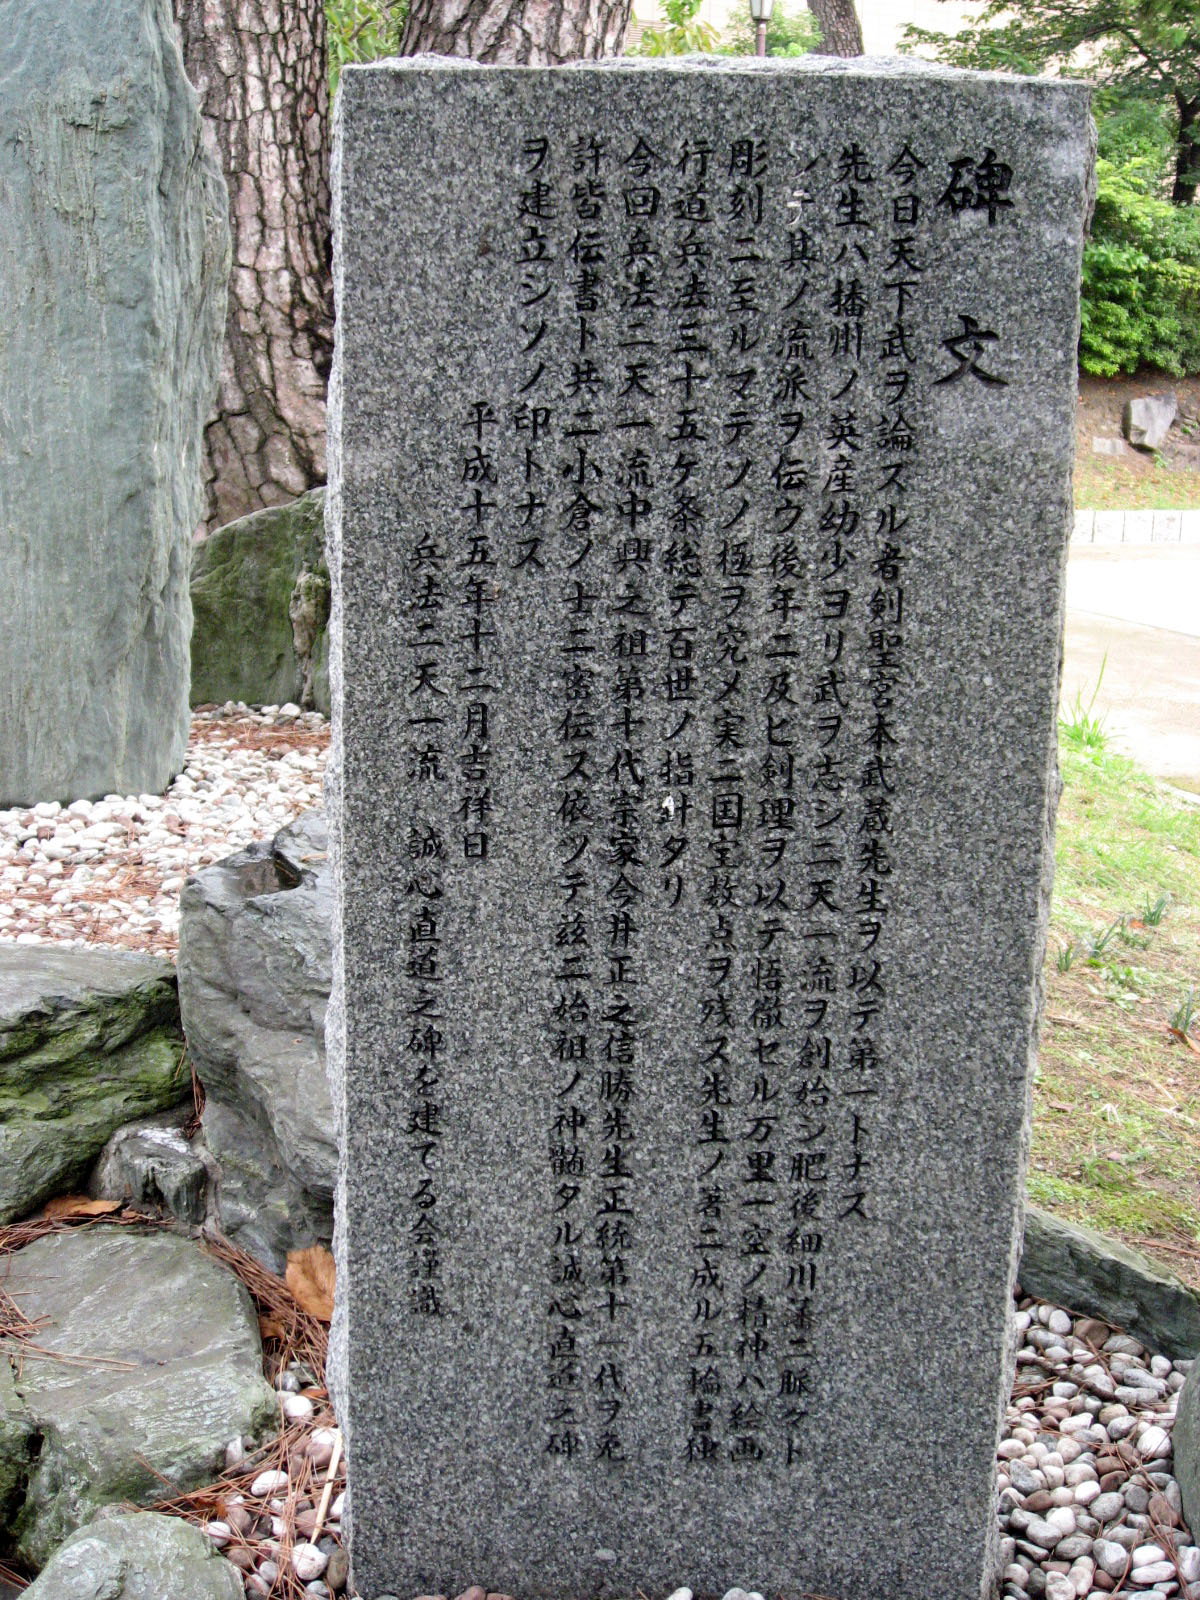 碑文
今日天下武ヲ論スル者剣聖宮本武蔵先生ヲ以テ第一トナス
先生ハ播州ノ英産幼少ヨリ武ヲ志シ二天一流ヲ創始シ肥後細川藩ニ脈々ト
シテ其ノ流派ヲ伝ウ後年ニ及ヒ剣理ヲ以テ悟徹セル万里一空ノ精神ハ絵画
彫刻ニ至ルマテソノ極ヲ究メ実ニ国宝数点ヲ残ス先生ノ著ニ成ル五輪書独
行道兵法三十五ケ条総テ百世ノ指針タリ
今回兵法二天一流中興之祖第十代宗家今井正之信勝先生正統第十一代ヲ免
許皆伝書ト共ニ小倉ノ士ニ密伝ス依ツテ茲ニ始祖ノ神髄タル誠心直道之碑
ヲ建立シソノ印トナス
平成十五年十二月吉祥日
兵法二天一流 誠心直道之碑を建てる会謹識